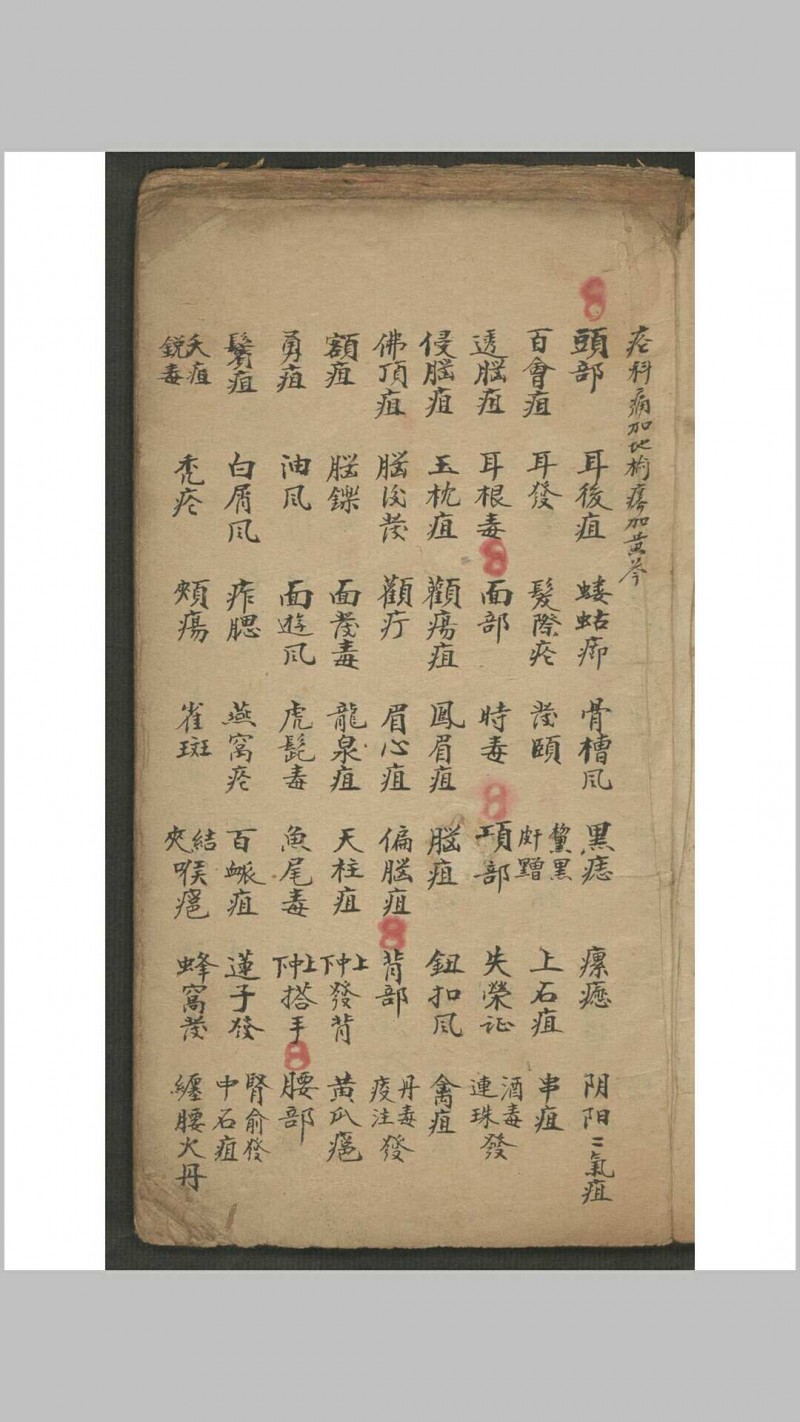 疮科痛加地榆痒加黄芩
頭部
百會疽
透腦疽
侵腦疽
佛頂疽
額疽
勇疽
鬢疽
夭疽
銳毒
耳後疽
耳發
耳根毒
玉枕疽
腦後發
腦鑠
油风
白屑风
秃疮
螻蛄癤
髮際疮
面部
顴瘍疽
顴疔
面發毒
面遊风
痄腮
頰瘍
骨槽风
發頤
時毒
鳳眉疽
眉心疽
龍泉疽
虎髭毒
燕窩疮
雀斑
黑痣
黧黑
皯䵟
項部
腦疽
偏腦疽
天柱疽
魚尾毒
百脈疽
結夾喉癰
瘰癧
上石疽
失榮证
鈕扣风
背部
上中下發背
上中下搭手
蓮子發
蜂窩發
阴阳二氣疽
串疽
酒毒
連珠發
禽疽
丹毒
疫注發
黄瓜癰
腰部
腎俞發
中石疽
纏腰火丹